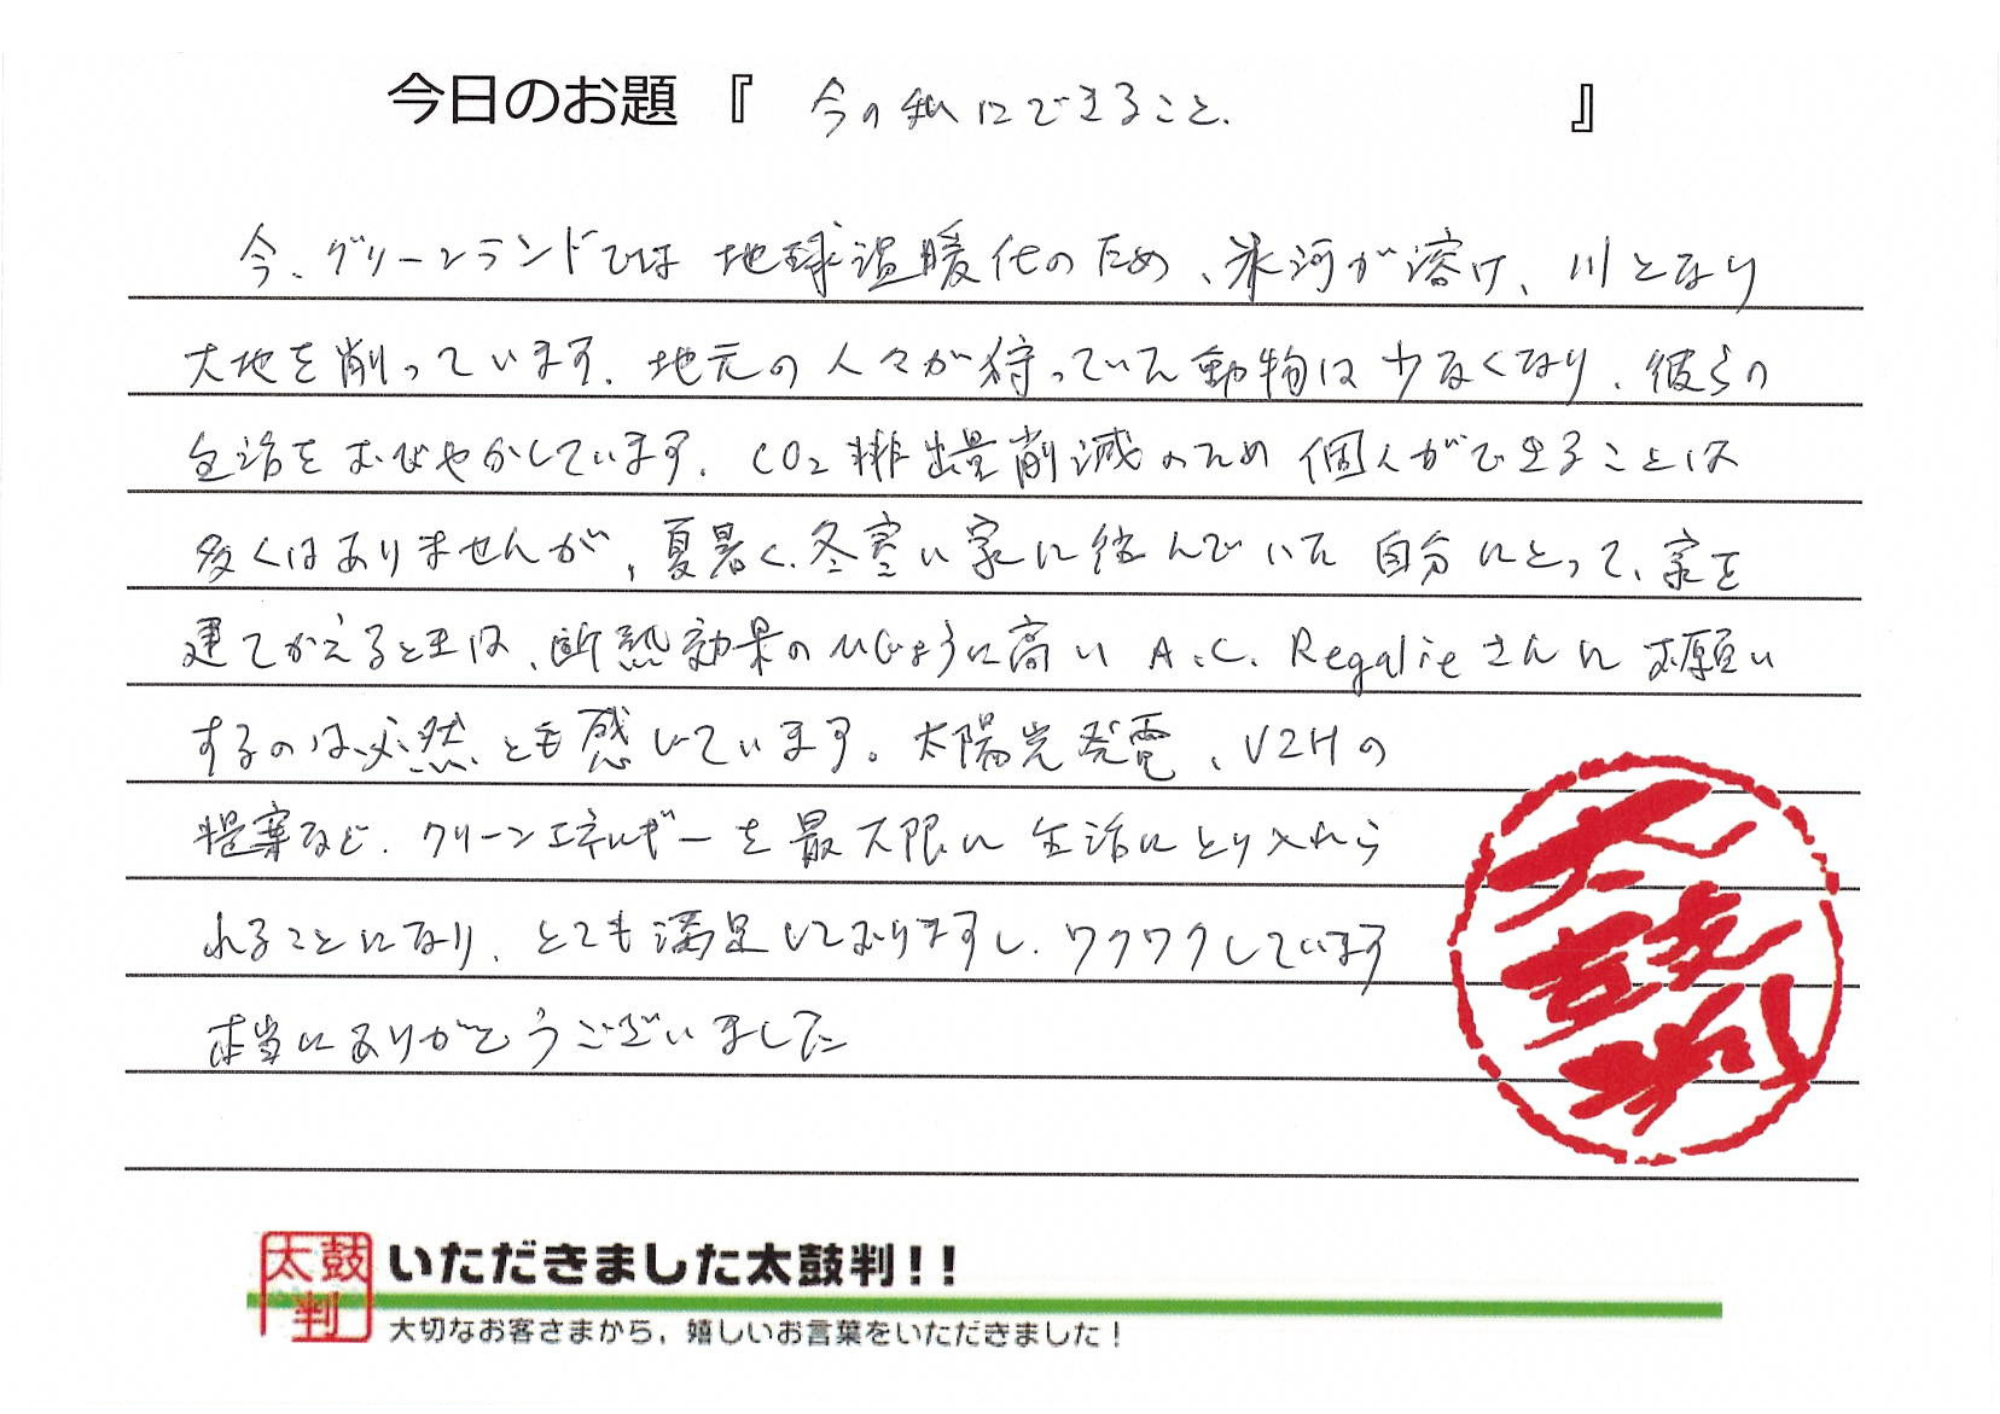 今日のお題 『 今の私にできること. 』
今、グリーンランドでは 地球温暖化のため、氷河が溶け、川となり
大地を削っています. 地元の人々が狩っていた動物は少なくなり、彼らの
生活をおびやかしています. CO2排出量削減のため 個人ができることは
多くはありませんが, 夏暑く、冬寒い家に住んでいた 自分にとって、家を
建てかえるときは、断熱効果のひじょうに高い A.C. Regalieさんにお願い
するのは、必然、とも感じています。太陽光発電、V2Hの
提案など、クリーンエネルギーを最大限に 生活にとり入れら
れることになり、とても満足しておりますし、ワクワクしています
本当にありがとうございました
太鼓判
太鼓判
いただきました太鼓判!!
大切なお客さまから, 嬉しいお言葉をいただきました!